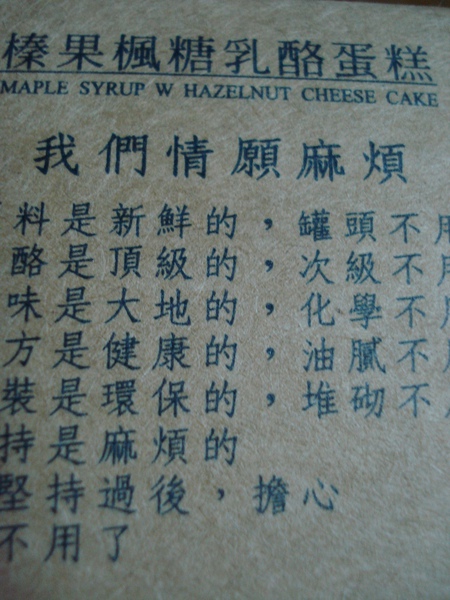 榛果楓糖乳酪蛋糕
MAPLE SYRUP W HAZELNUT CHEESE CAKE
我們情願麻煩
料是新鮮的，罐頭不用
酪是頂級的，次級不用
味是大地的，化學不用
方是健康的，油膩不用
裝是環保的，堆砌不用
持是麻煩的
堅持過後，擔心
不用了